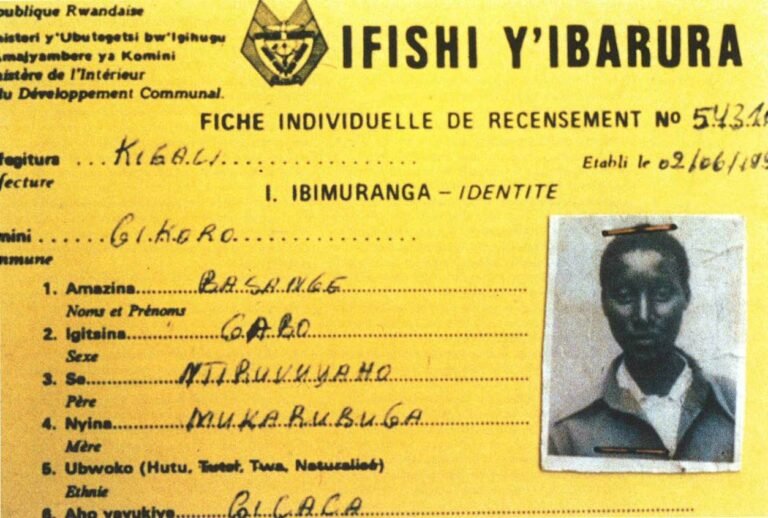 publique Rwandaise
nisteri y'Ubutegetsi bw'Igihugu
Amajyambere ya Komini
nistère de l'Intérieur
du Développement Communal.
IFISHI Y'IBARURA
FICHE INDIVIDUELLE DE RECENSEMENT No 5431
fegitura ... KIGALI
fecture
Etabli le 02/06/199
I. IBIMURANGA – IDENTITE
mini ...... GIKORO
mmune
1. Amazina BASANGE
Noms et Prénoms
2. Igitsina GABO
Sexe
3. Se NTIRUVUYAHO
Père
4. Nyina MUKARUBUGA
Mère
5. Ubwoko (Hutu, Tutsi, Twa, Naturalisé)
Ethnie
6. Aho yavukiye GICACA